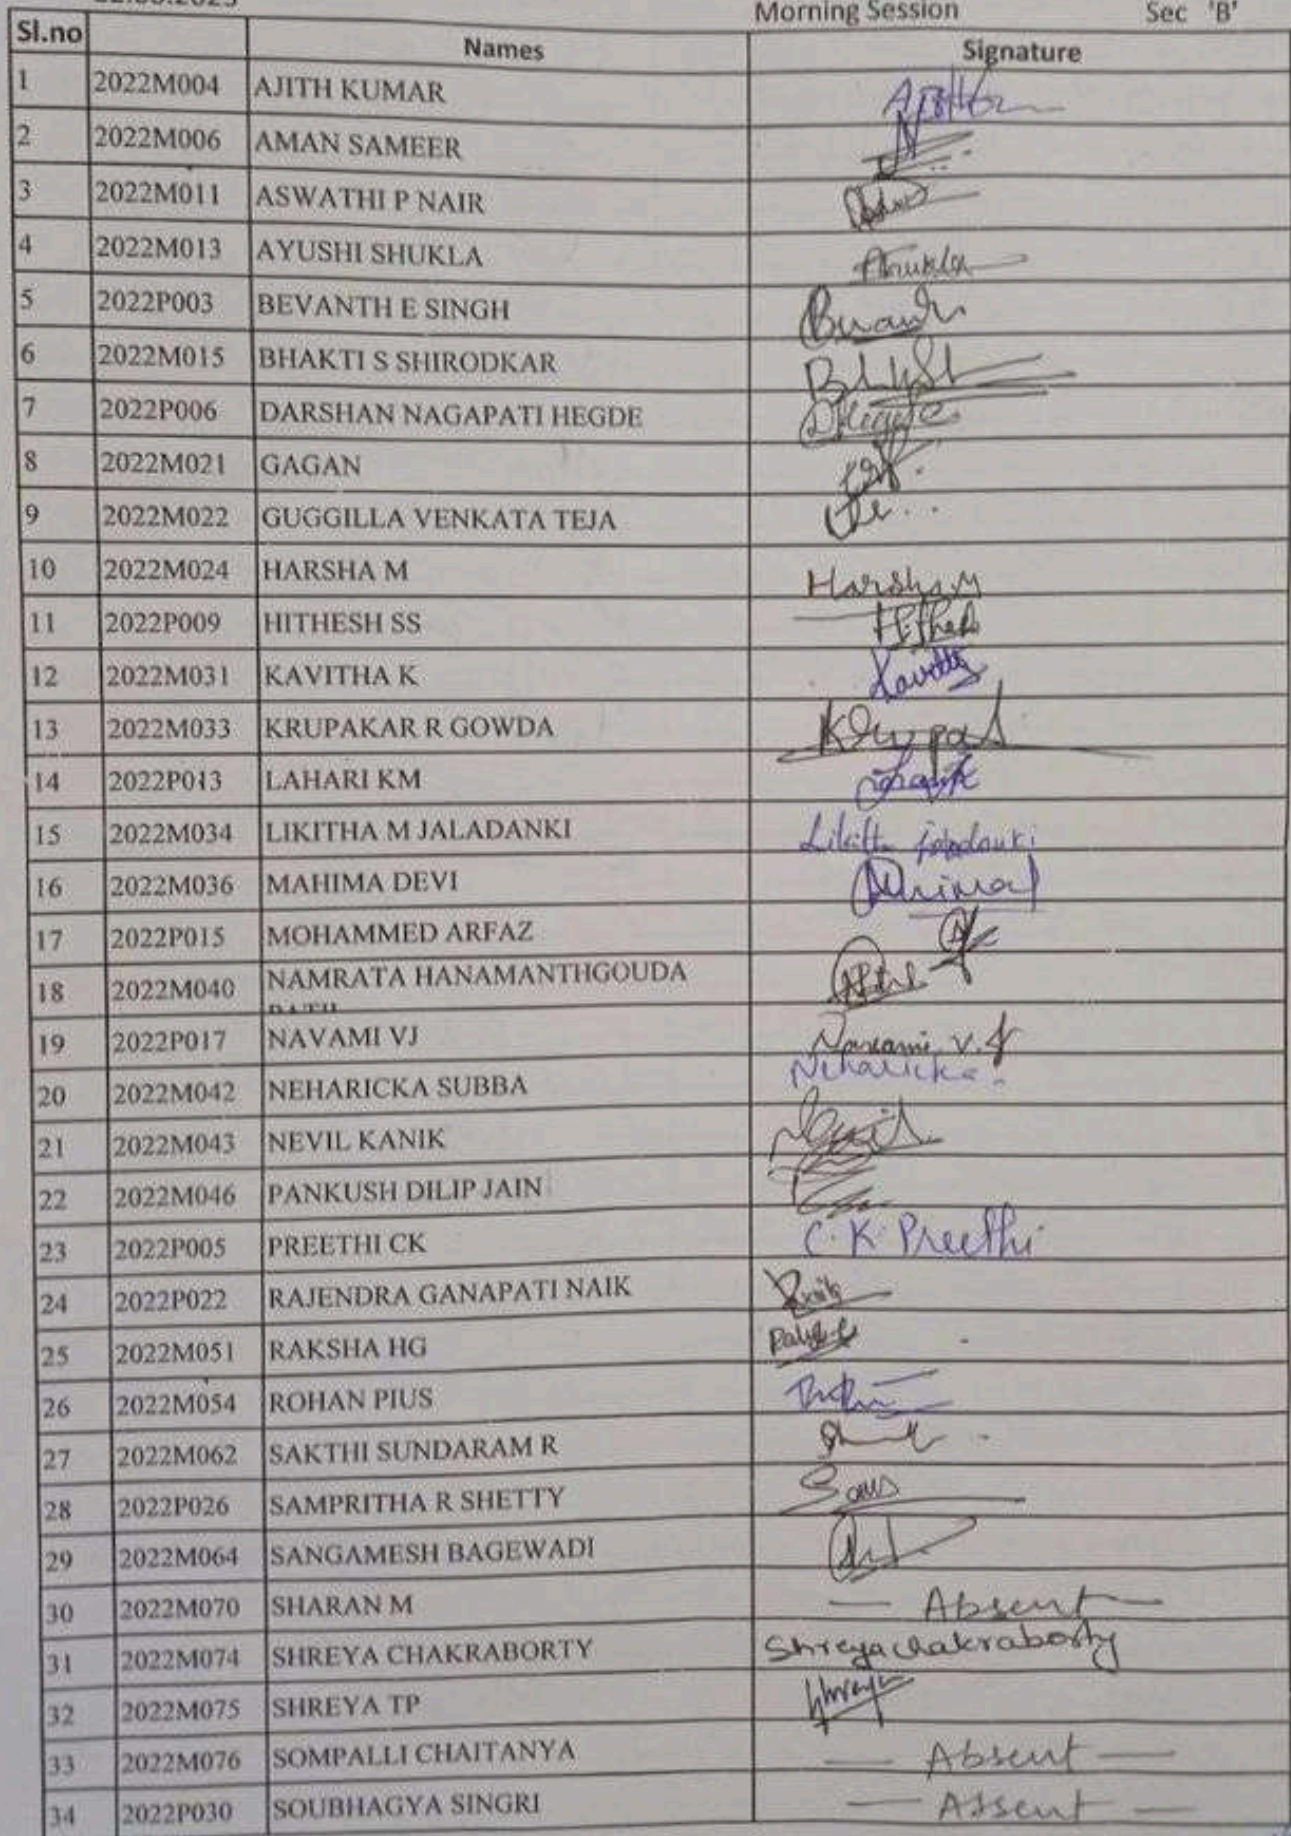 Morning Session Sec 'B'
Sl.no Names Signature
1 2022M004 AJITH KUMAR
2 2022M006 AMAN SAMEER
3 2022M011 ASWATHI P NAIR
4 2022M013 AYUSHI SHUKLA
5 2022P003 BEVANTH E SINGH
6 2022M015 BHAKTI S SHIRODKAR
7 2022P006 DARSHAN NAGAPATI HEGDE
8 2022M021 GAGAN
9 2022M022 GUGGILLA VENKATA TEJA
10 2022M024 HARSHA M Harsha M
11 2022P009 HITHESH SS
12 2022M031 KAVITHA K Kavitha
13 2022M033 KRUPAKAR R GOWDA
14 2022P013 LAHARI KM
15 2022M034 LIKITHA M JALADANKI
16 2022M036 MAHIMA DEVI
17 2022P015 MOHAMMED ARFAZ
18 2022M040 NAMRATA HANAMANTHGOUDA
19 2022P017 NAVAMI VJ Navami V.J
20 2022M042 NEHARICKA SUBBA Neharicka.
21 2022M043 NEVIL KANIK
22 2022M046 PANKUSH DILIP JAIN
23 2022P005 PREETHI CK C.K. Preethi
24 2022P022 RAJENDRA GANAPATI NAIK
25 2022M051 RAKSHA HG
26 2022M054 ROHAN PIUS
27 2022M062 SAKTHI SUNDARAM R
28 2022P026 SAMPRITHA R SHETTY
29 2022M064 SANGAMESH BAGEWADI
30 2022M070 SHARAN M — Absent —
31 2022M074 SHREYA CHAKRABORTY Shreya chakraborty
32 2022M075 SHREYA TP Shreya
33 2022M076 SOMPALLI CHAITANYA — Absent —
34 2022P030 SOUBHAGYA SINGRI — Absent —